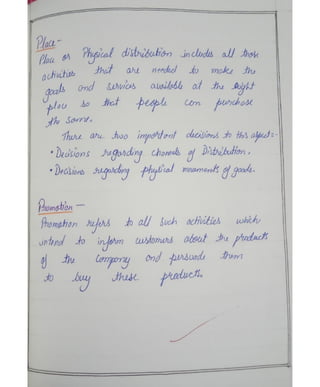 Place-
Place or Physical distribution includes all those
activities that are needed to make the
goods and services available at the right
place so that people can purchase
the same.
There are two important decisions to this aspects:-
• Decisions regarding channels of Distribution.
• Decisions regarding physical moements of goods.
Promotion —
Promotion refers to all such activities which
intend to inform customers about the products
of the company and persuade them
to buy these products.